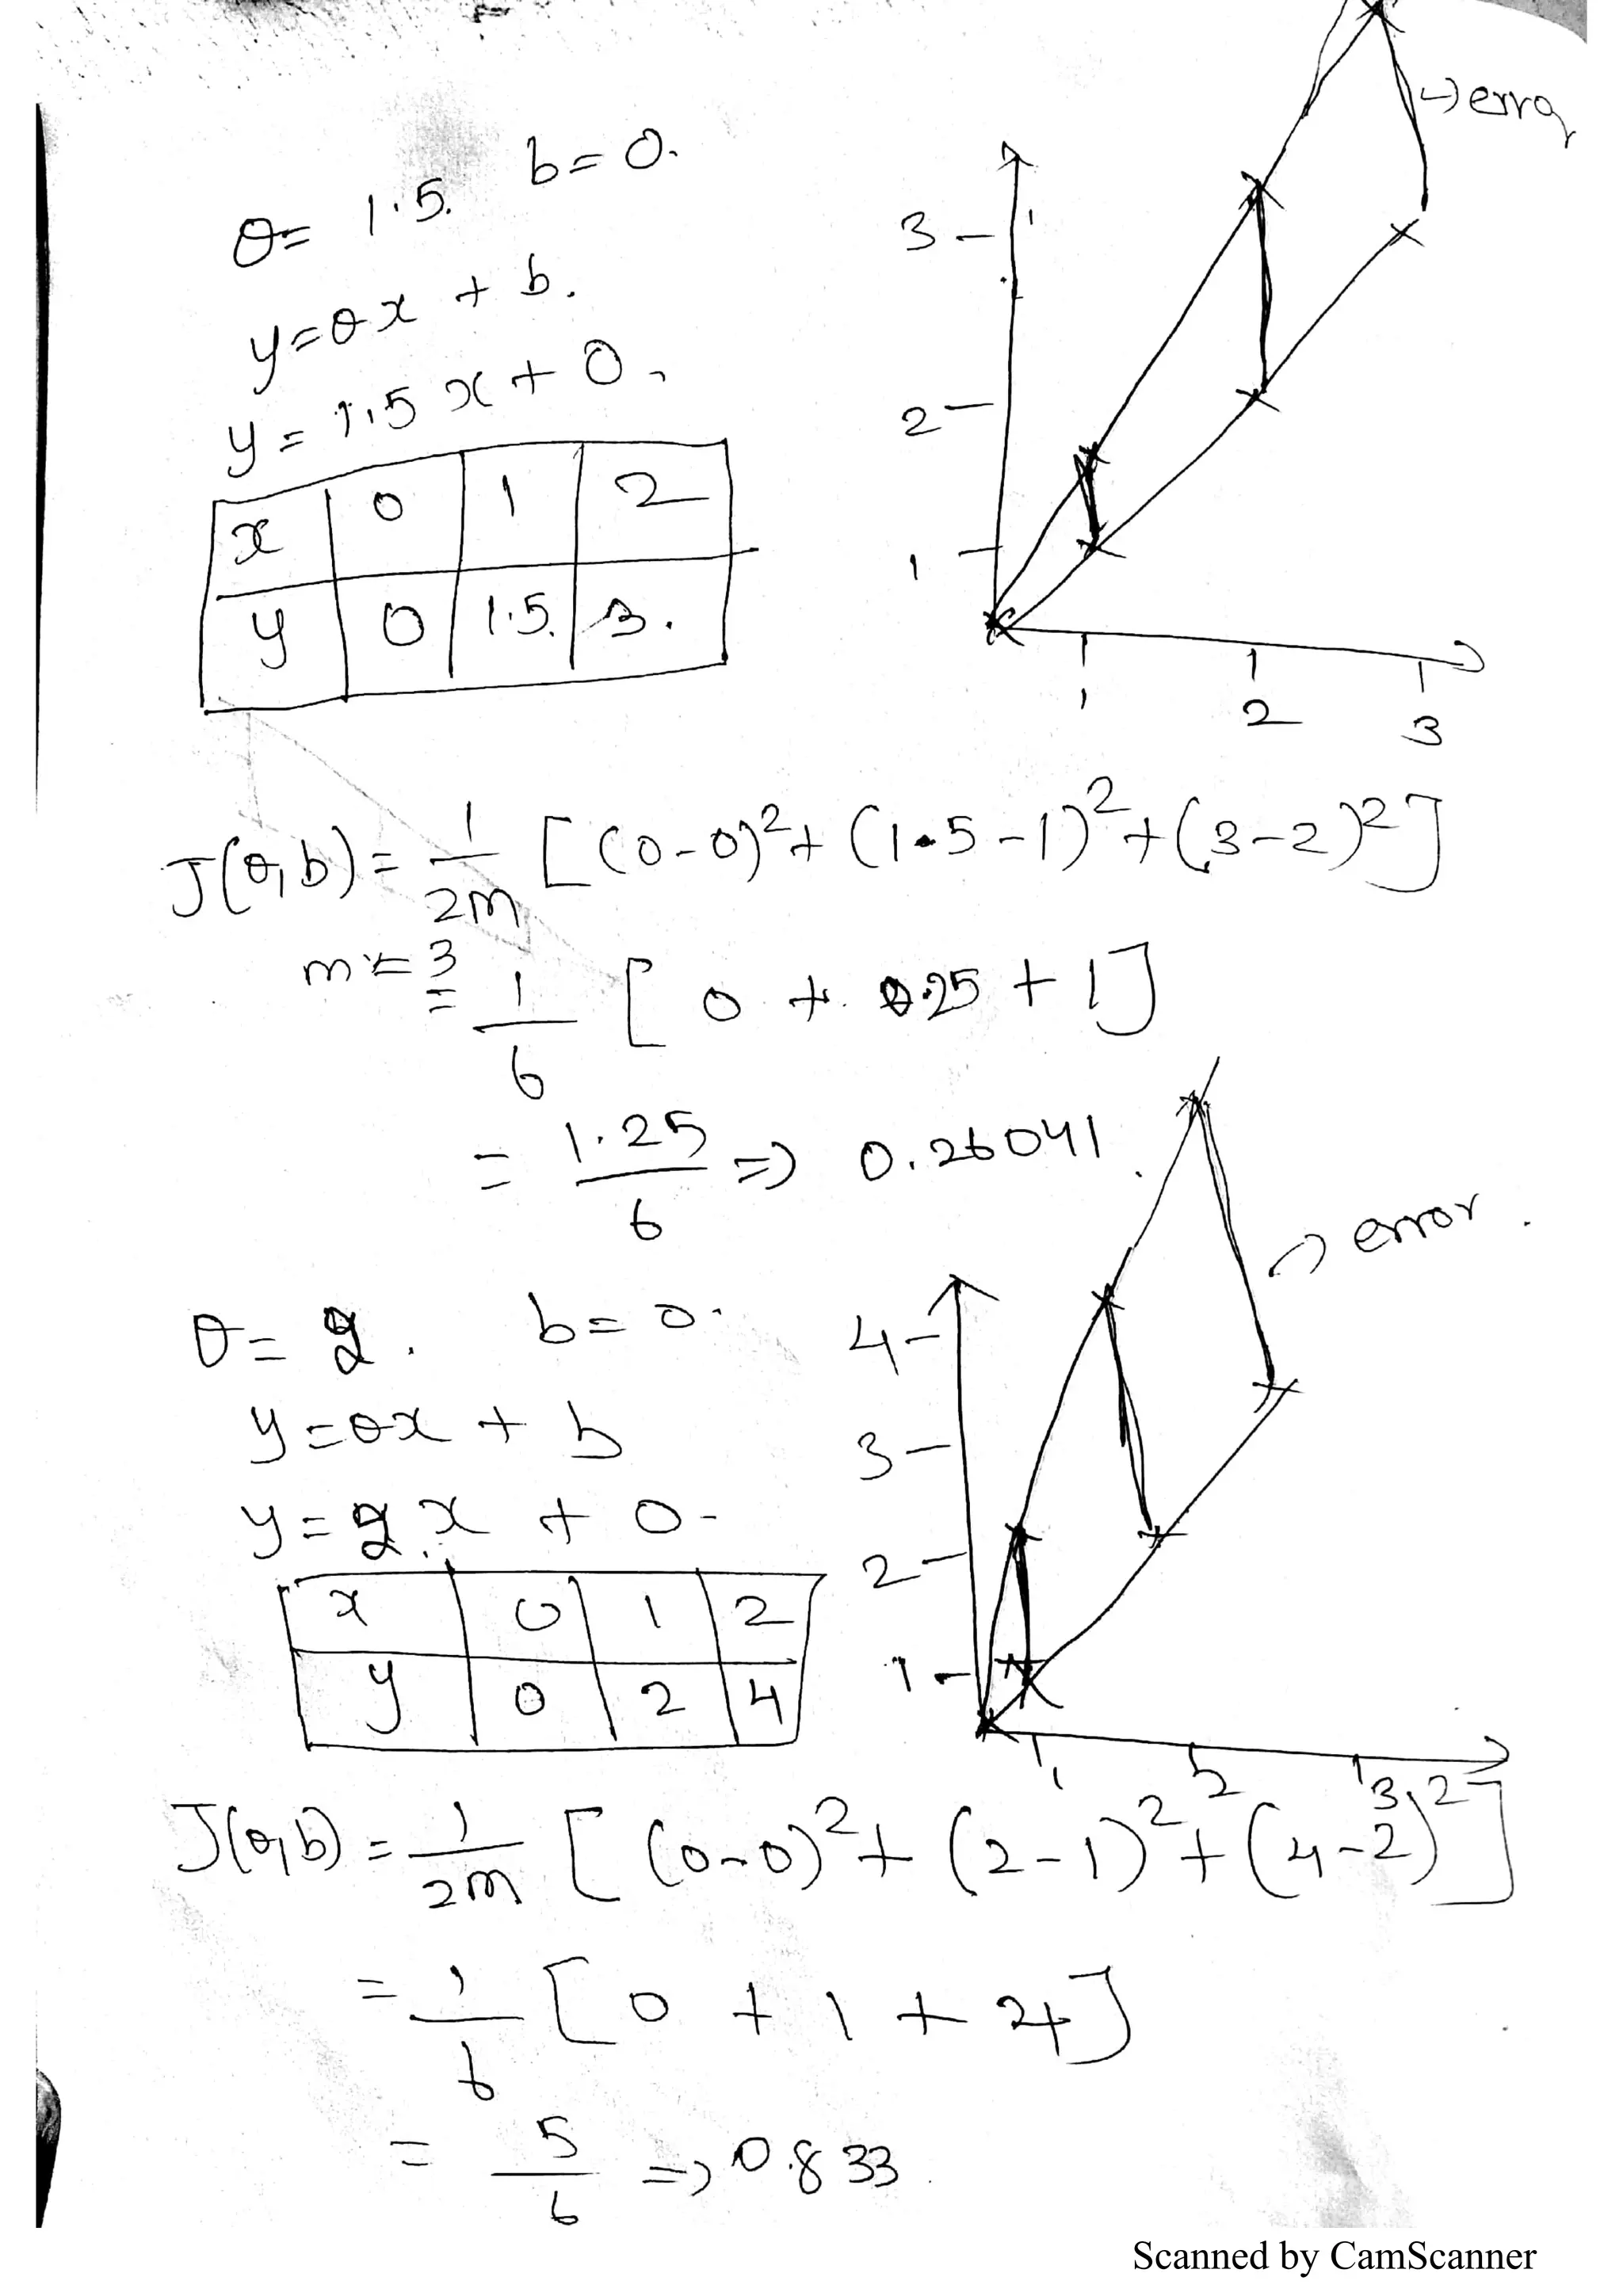 θ= 1.5. b=0.
y=θx + b.
y=1.5x+0.
x 0 1 2
y 0 1.5. 3.
→ error
3
2
1
1 2 3
J(θ,b)= 1/2m [(0-0)²+(1.5-1)²+(3-2)²]
m=3
= 1/6 [0 + 0.25 + 1]
= 1.25/6 => 0.26041.
θ= 2. b=0.
y=θx + b
y=2x + 0.
x 0 1 2
y 0 2 4
→ error.
4
3
2
1
1 2 3
J(θ,b)= 1/2m [(0-0)²+(2-1)²+(4-2)²]
= 1/6 [0 + 1 + 4]
= 5/6 => 0.833.
Scanned by CamScanner